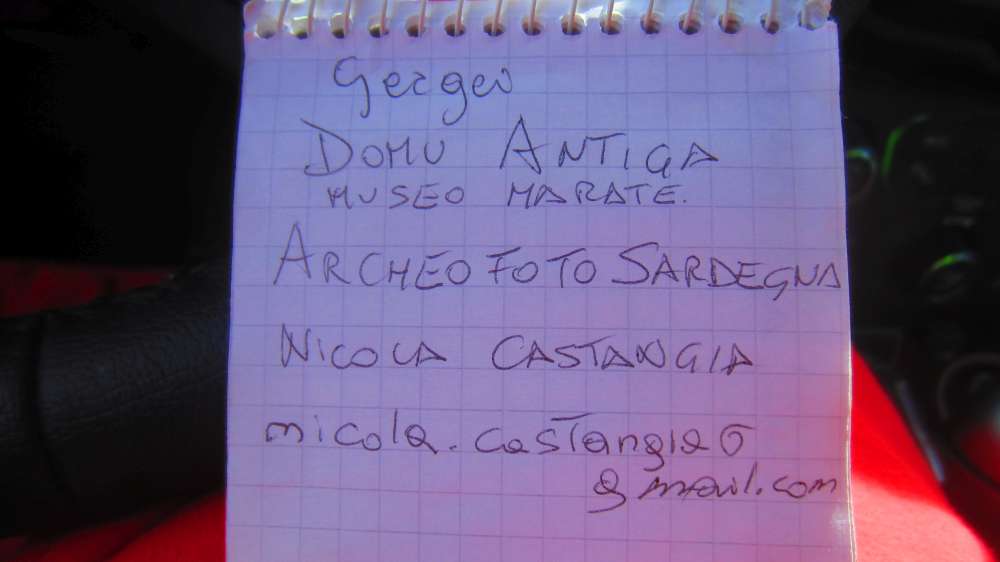 Gergei
DOMU ANTIGA
MUSEO MARATE.
ARCHEO FOTO SARDEGNA
NICOLA CASTANGIA
nicola.castangia@
gmail.com